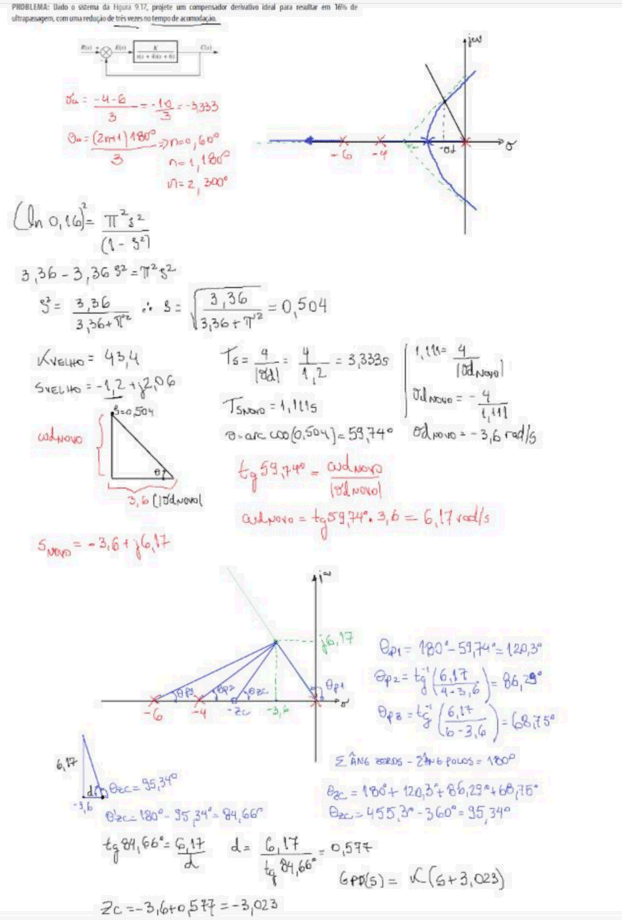 PROBLEMA: Dado o sistema da Figura 9.17, projete um compensador derivativo ideal para resultar em 16% de
ultrapassagem, com uma redução de três vezes no tempo de acomodação.
R(s) + E(s) K C(s)
s(s + 4)(s + 6)
σa = (-4-6)/3 = -10/3 = -3,333
θa = (2n+1)180°/3 ⇒ n=0, 60°
n=1, 180°
n=2, 300°
jω
-6 -4 -σd σ
(ln 0,16)² = π²ξ²/(1-ξ²)
3,36 - 3,36ξ² = π²ξ²
ξ² = 3,36/(3,36+π²) ∴ ξ = √(3,36/(3,36+π²)) = 0,504
KVELHO = 43,4
SVELHO = -1,2 + j2,06
Ts = 4/|σd| = 4/1,2 = 3,333s
TsNOVO = 1,111s
θ = arc cos(0,504) = 59,74°
1,111 = 4/|σdNOVO|
σdNOVO = -4/1,111
σdNOVO = -3,6 rad/s
ξ=0,504
ωdNOVO
θ
3,6 (|σdNOVO|
tg 59,74° = ωdNOVO/|σdNOVO|
ωdNOVO = tg 59,74° · 3,6 = 6,17 rad/s
SNOVO = -3,6 + j6,17
jω
j6,17
θp3 θp2 θzc θp1
-6 -4 -Zc -3,6 σ
θp1 = 180° - 59,74° = 120,3°
θp2 = tg⁻¹(6,17/(4-3,6)) = 86,29°
θp3 = tg⁻¹(6,17/(6-3,6)) = 68,75°
Σ ÂNG ZEROS - Σ ÂNG POLOS = 180°
θzc = 180° + 120,3° + 86,29° + 68,75°
θzc = 455,3° - 360° = 95,34°
6,17
d
-3,6
θzc = 95,34°
θ'zc = 180° - 95,34° = 84,66°
tg 84,66° = 6,17/d d = 6,17/tg 84,66° = 0,577
GPD(s) = K(s+3,023)
Zc = -3,6 + 0,577 = -3,023